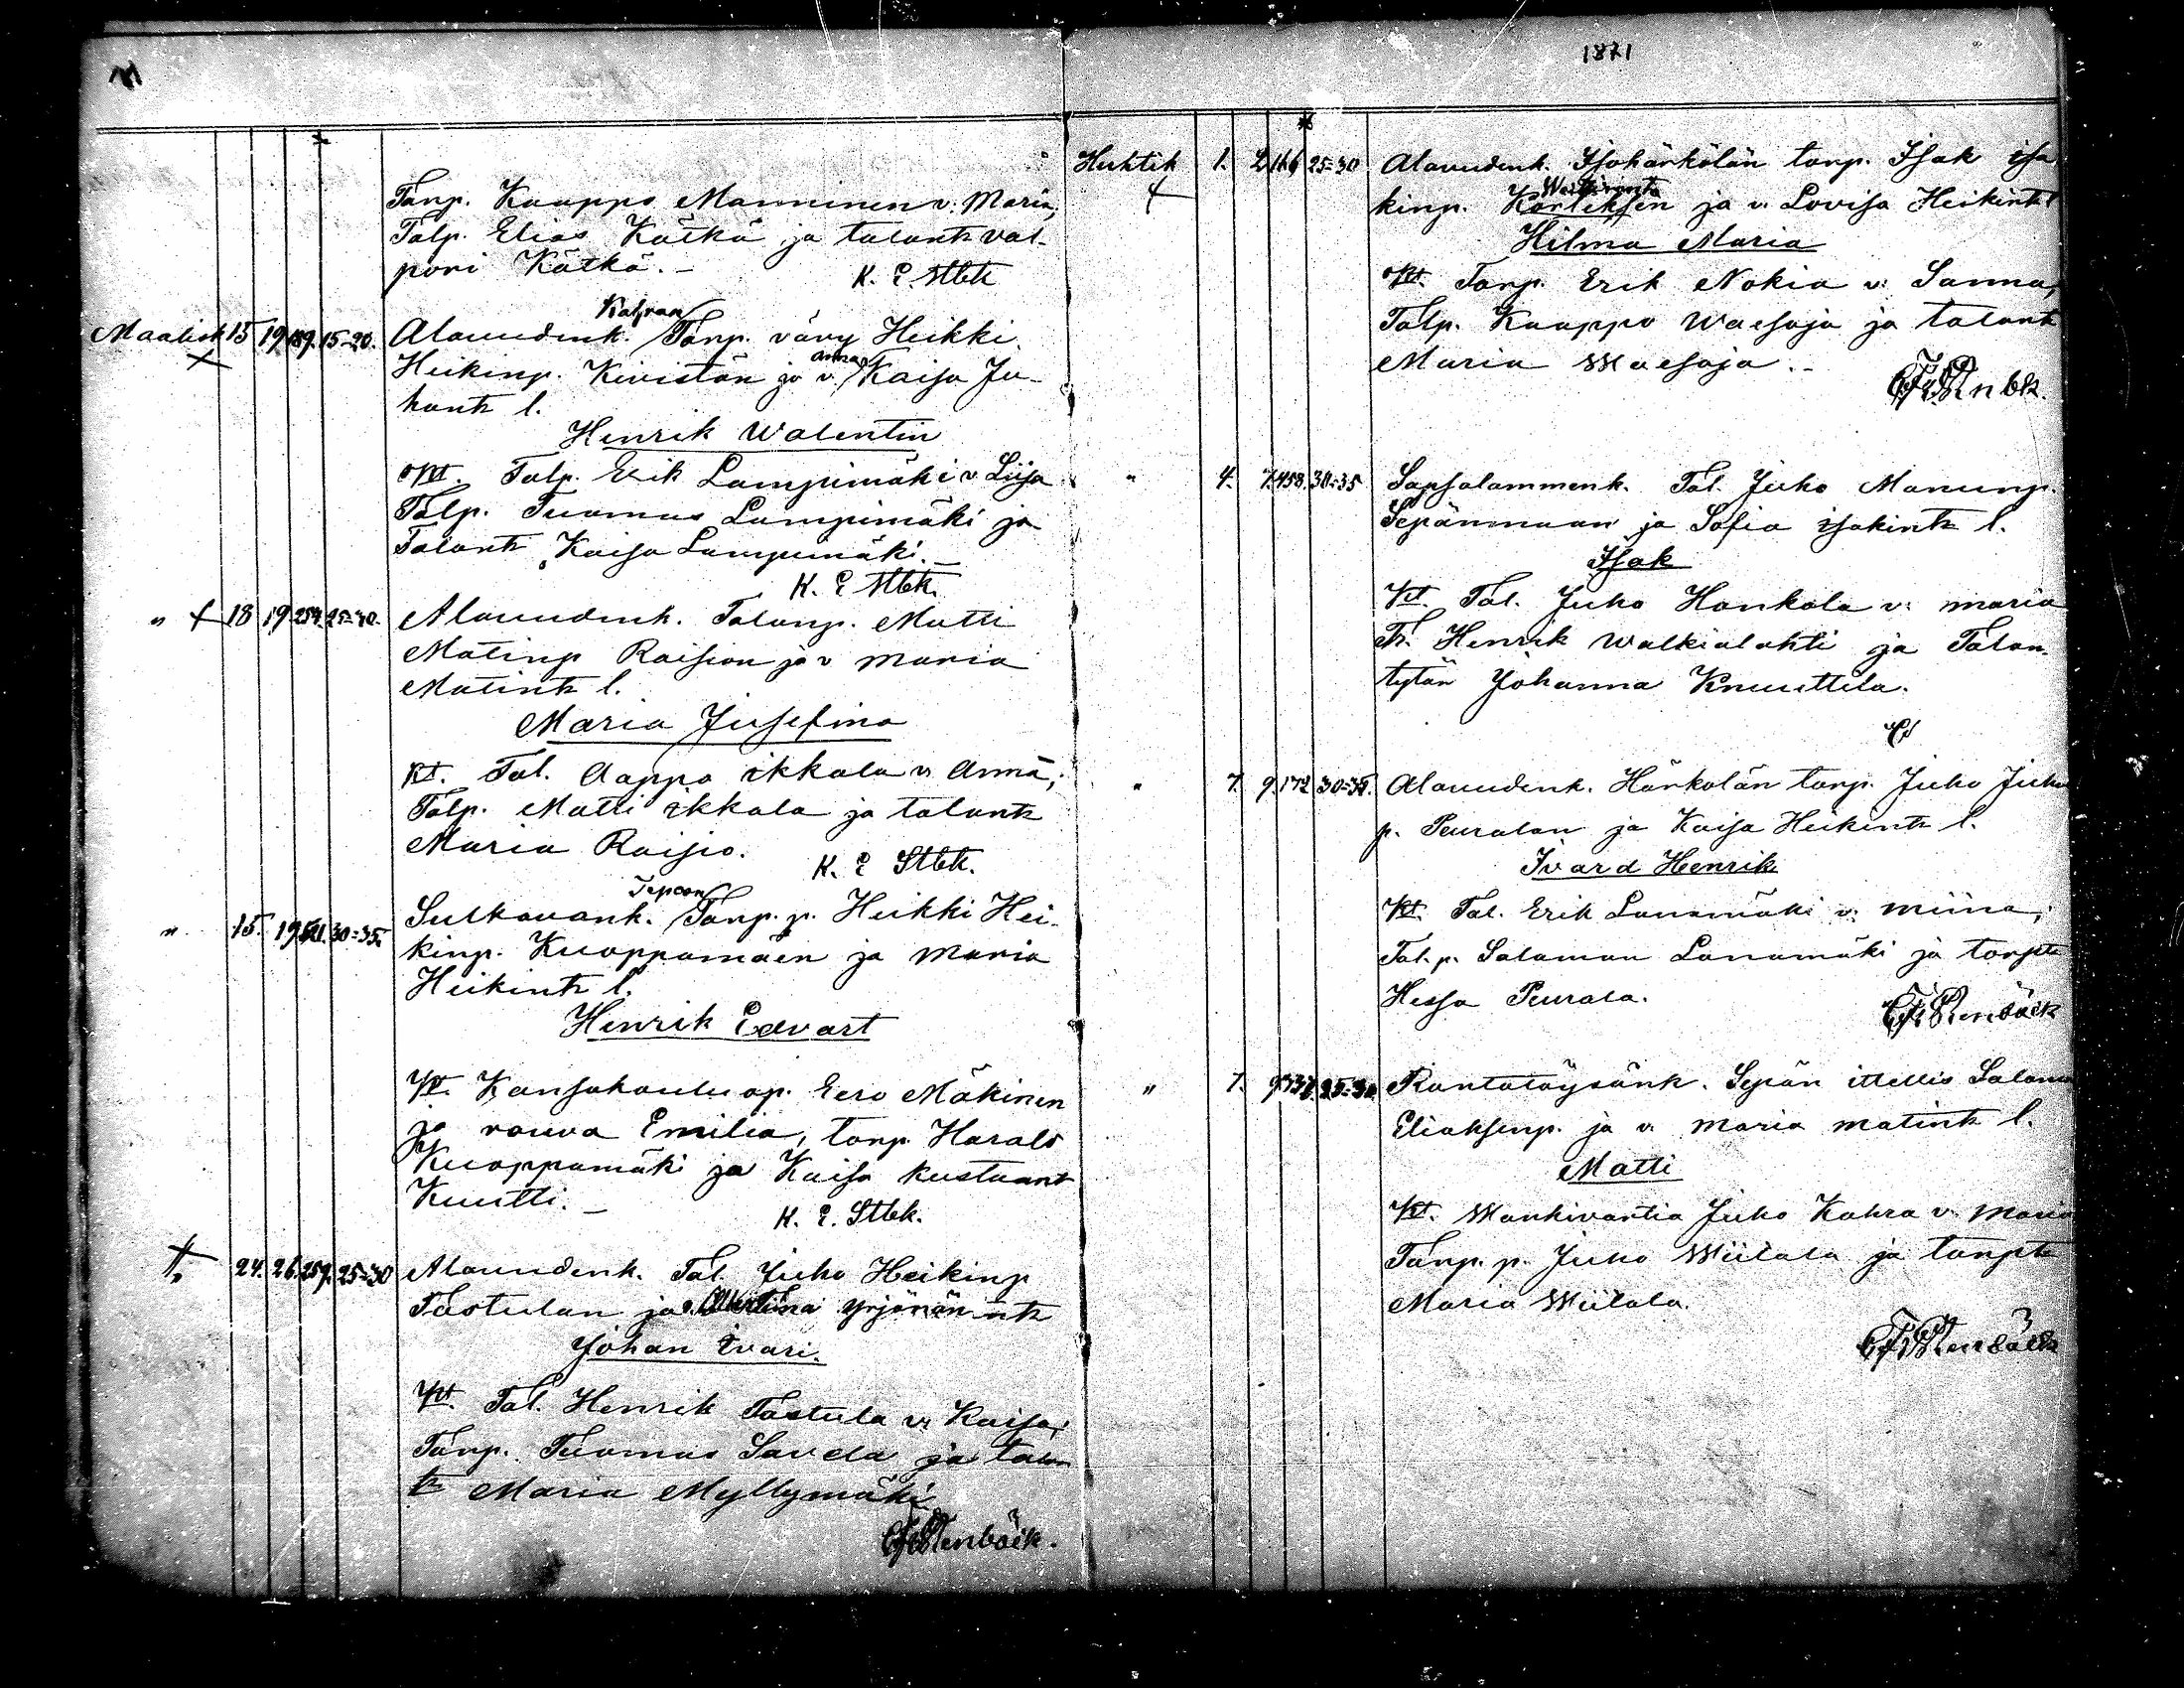 1871
Tanp. Kauppo Manninen v. Maria,
Talp. Elias Kätkä ja talontr val-
pori Kätkä.-
K. E. Stbk
Maalisk 15 19 189. 15-20. Alavudenk. Kahran Tanp. vävy Heikki
Heikinp. Kivistön ja v. Anna Kaisa Ju-
hontr l.
Henrik Walentin
Kt. Talp. Erik Lampimäki v. Liisa
Talp. Tuomas Lampimäki ja
Talontr Kaisa Lampimäki.-
K. E Stbk.
" 18 19 254. 25-30. Alavudenk. Talonp. Matti
Matinp Raision ja v Maria
Matintr l.
Maria Jusefina
Kt. Tal. Aappo ikkala v. Anna,
Talp. Matti ikkala ja talontr
Maria Raisio.
K. E Stbk.
" 15. 19 30-35. Sulkavank. Tepoon Tanp. p. Heikki Hei-
kinp. Kuoppamäen ja Maria
Heikintr l.
Henrik Edvart
Kt. Kansakouluop. Eero Mäkinen
ja rouva Emilia, tonp. Harald
Kuoppamäki ja Kaisa kustaant
Kuutti.-
K. E. Stbk.
24. 26. 259. 25-30 Alavudenk. Tal. Juho Heikinp
Tastulan ja v. yrjönän ntr
Johan Ivari.
Kt. Tal. Henrik Tastula v. Kaisa,
Tanp. Tuomas Savela ja talon
tr Maria Myllymäki
Stenbäck.
Huhtik 1. 2 166 25-30 Alavudenk. Isohärkölän tonp. Isak isa
kinp. Korteksen ja v. Lovisa Heikintr l
Hilma Maria
Kt. Tanp. Erik Nokia v. Sanna,
Talp. Kaappo Waesoja ja talontr
Maria Waesoja.-
" 4. 7. 458. 30-35 Sapsalammenk. Tal. Juho Manunp.
Sepänmaan ja Sofia isakintr l.
Isak
Kt. Tal. Juho Honkola v. Maria
Tr. Henrik Walkialahti ja Talon
tytär Johanna Knuuttila.
" 7. 9. 172 30-35. Alavudenk. Härkölän tonp. Juho Juho
p. Peuralan ja Kaisa Heikintr l.
Ivard Henrik
Kt. Tal. Erik Lanamäki v. Miina,
Tal. p. Salaman Lanamäki ja torptr
Hessa Peurala.
Stenbäck
" 7. 25-30 Rantatöysänk. Sepän ittellis Salama
Eliaksenp. ja v. Maria matintr l.
Matti
Kt. Wankivartia Juho Kahra v. Maria
Tanp. p. Juho Wiitala ja tonptr
Maria Wiitala.
Stenbäck